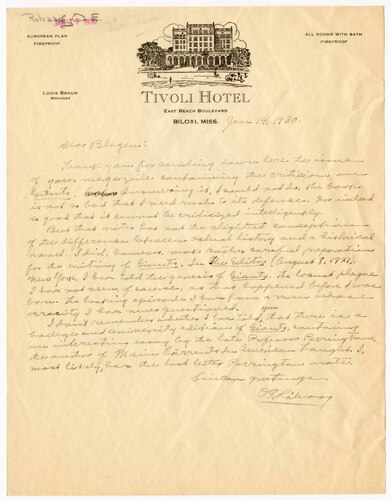 Rölvaag, O.E.
EUROPEAN PLAN
FIREPROOF
ALL ROOMS WITH BATH
FIREPROOF
LOUIS BRAUN
MANAGER
TIVOLI HOTEL
EAST BEACH BOULEVARD
BILOXI, MISS. Jan 14, 1930.
Dear Blegen:
Thank you for sending down here the issue
of your magazine containing the criticism on
Giants. Answering it, I could not do. The book
is not so bad that I need rush to its defense. Nor indeed
so good that it cannot be criticized intelligently.
But that writer has not the slightest conception
of the difference between actual history and a historical
novel. I did, however, most careful preparation
for the writing of Giants. In The Editor (August 6, 1927),
New York, I have told the genesis of Giants. The locust plague
I have not seen of course, as that happened before I was
born. The beating episode I have from a man whose
veracity I have never questioned.
I don't remember whether I have told you that there is a
college and university edition of Giants, containing
an interesting essay by the late Professor Parrington,
the author of Main Currents In American Thought,
most likely, the last letter Parrington wrote
Sincere greetings
O.E. Rölvaag